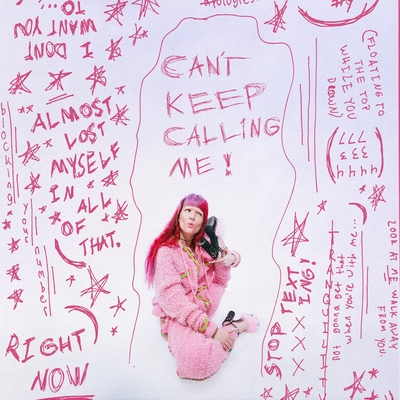 apologies.
I DON'T
WANT YOU
TO...
CAN'T
KEEP
CALLING
ME!
ALMOST
LOST
MYSELF
IN
ALL
OF
THAT.
blocking your number
RIGHT
NOW
(FLOATING TO
THE TOP
WHILE YOU
DROWN)
STOP TEXT
ING!
XXX
when you're with me...
not gonna get that
LOOK AT ME WALK AWAY
FROM YOU.